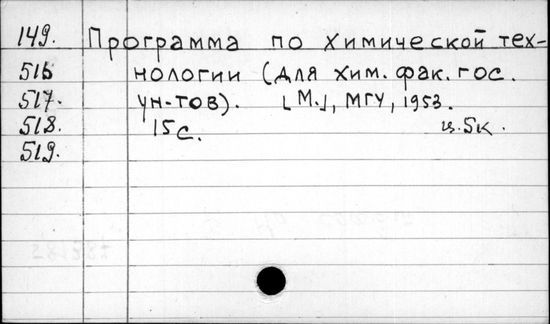 149. Программа по химической тех-
516 нологии (для хим. фак. гос.
517. ун-тов). [М.], МГУ, 1953.
518. 15с. ц. 5к.
519.